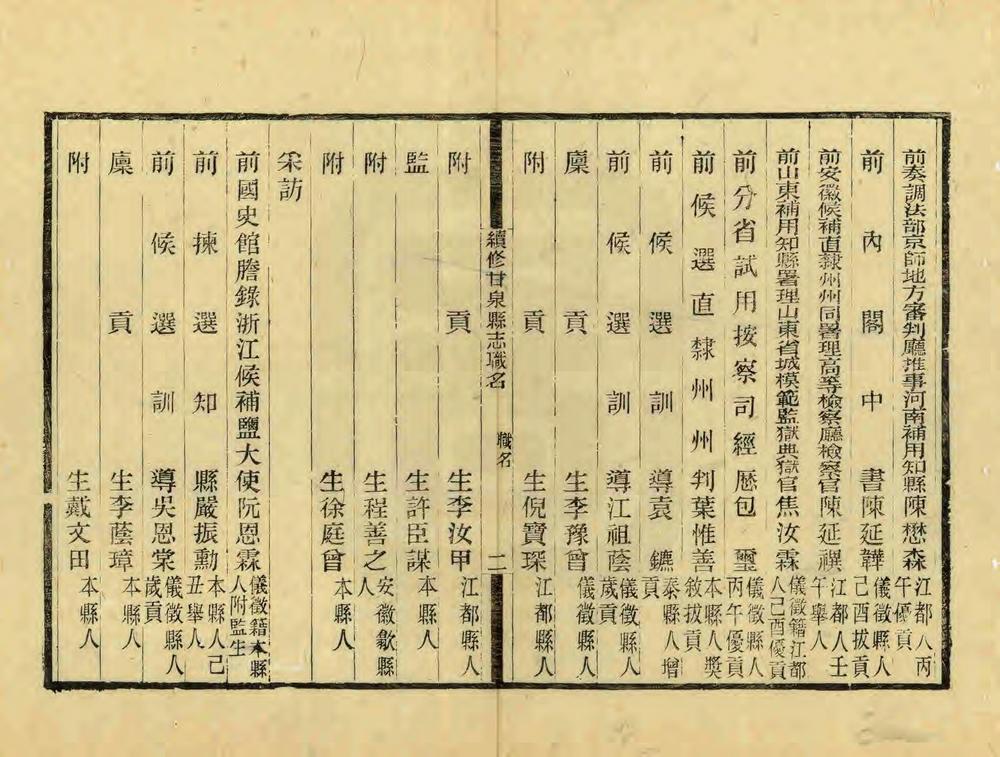 前奏調法部京師地方審判廳推事河南補用知縣陳懋森江都人丙午優貢
前內閣中書陳延韡儀徵縣人己酉拔貢
前安徽候補直隸州州同署理高等檢察廳檢察官陳延禩江都人壬午舉人
前山東補用知縣署理山東省城模範監獄典獄官焦汝霖儀徵籍江都人己酉優貢
前分省試用按察司經歷包璽儀徵縣人丙午優貢
前候選直隸州州判葉惟善本縣人獎敘拔貢
前候選訓導袁鑣泰縣人增貢
前候選訓導江祖蔭儀徵縣人歲貢
廩貢生李豫曾儀徵縣人
附貢生倪寶琛江都縣人
續修甘泉縣志職名 職名 二
附貢生李汝甲江都縣人
監生許臣謀本縣人
附生程善之安徽歙縣人
附生徐庭曾本縣人
采訪
前國史館謄錄浙江候補鹽大使阮恩霖儀徵籍本縣人附監生
前揀選知縣嚴振勳本縣人己丑舉人
前候選訓導吳恩棠儀徵縣人歲貢
廩貢生李蔭璋本縣人
附生戴文田本縣人